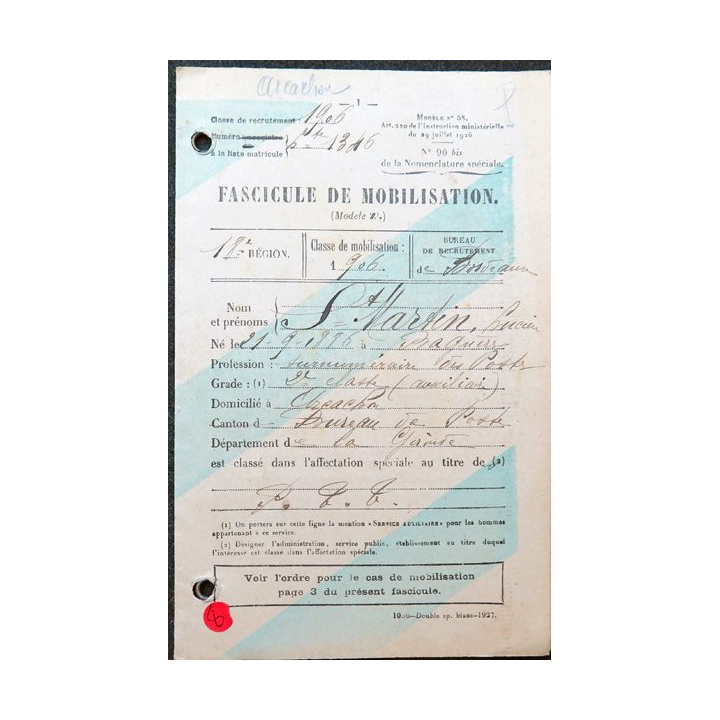 Arcachon
- 1 -
Classe de recrutement : 1906
Numéro au registre
à la liste matricule } 1346
Modèle n° 58.
Art. 220 de l'Instruction ministérielle
du 29 juillet 1926
N° 96 bis
de la Nomenclature spéciale.
FASCICULE DE MOBILISATION.
(Modèle Z¹.)
18e RÉGION.
Classe de mobilisation :
1906
BUREAU
DE RECRUTEMENT
de Bordeaux
Nom
et prénoms { St Martin, Lucien
Né le 21-9-1886 à
Profession : surnuméraire des Postes
Grade : (1) 2e classe (auxiliaire)
Domicilié à Arcachon
Canton d Bureau de Poste
Département de la Gironde
est classé dans l'affectation spéciale au titre de (2)
P. T. T.
(1) On portera sur cette ligne la mention « SERVICE AUXILIAIRE » pour les hommes
appartenant à ce service.
(2) Désigner l'administration, service public, établissement au titre duquel
l'intéressé est classé dans l'affectation spéciale.
Voir l'ordre pour le cas de mobilisation
page 3 du présent fascicule.
8
1056—Double sp. blanc-1927.